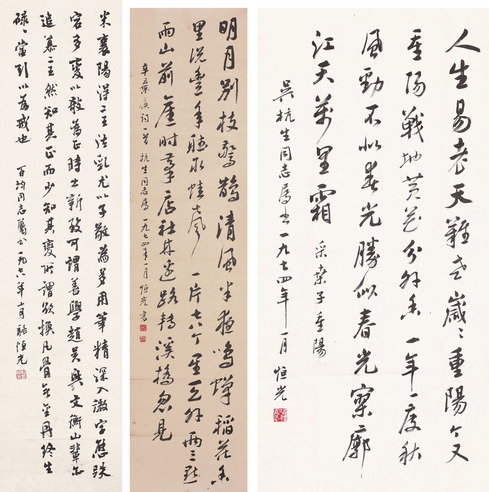 人生易老天難老歲々重陽今又
重陽戰地黄花分外香一年一度秋
風勁不似春光勝似春光寥廓
江天萬里霜 采桑子重陽
吳杭生同志屬書一九七四年一月 恒光
明月別枝驚鵲清風半夜鳴蟬稻花香
里說豐年聽取蛙聲一片七八个星天外兩三點
雨山前舊時茅店社林邊路轉溪橋忽見
辛棄疾詞一首杭生同志屬一九七四年一月恒光書
米襄陽得二王法乳尤以子敬爲多用筆精深入微字態跌
宕多變以教當時士新致可謂善學趙吳興文衡山輩亦
追慕二王然知其正而少知其變所謂欲換凡骨無金丹終生
碌々當引以爲戒也 同志屬 一九七六年十月 恒光